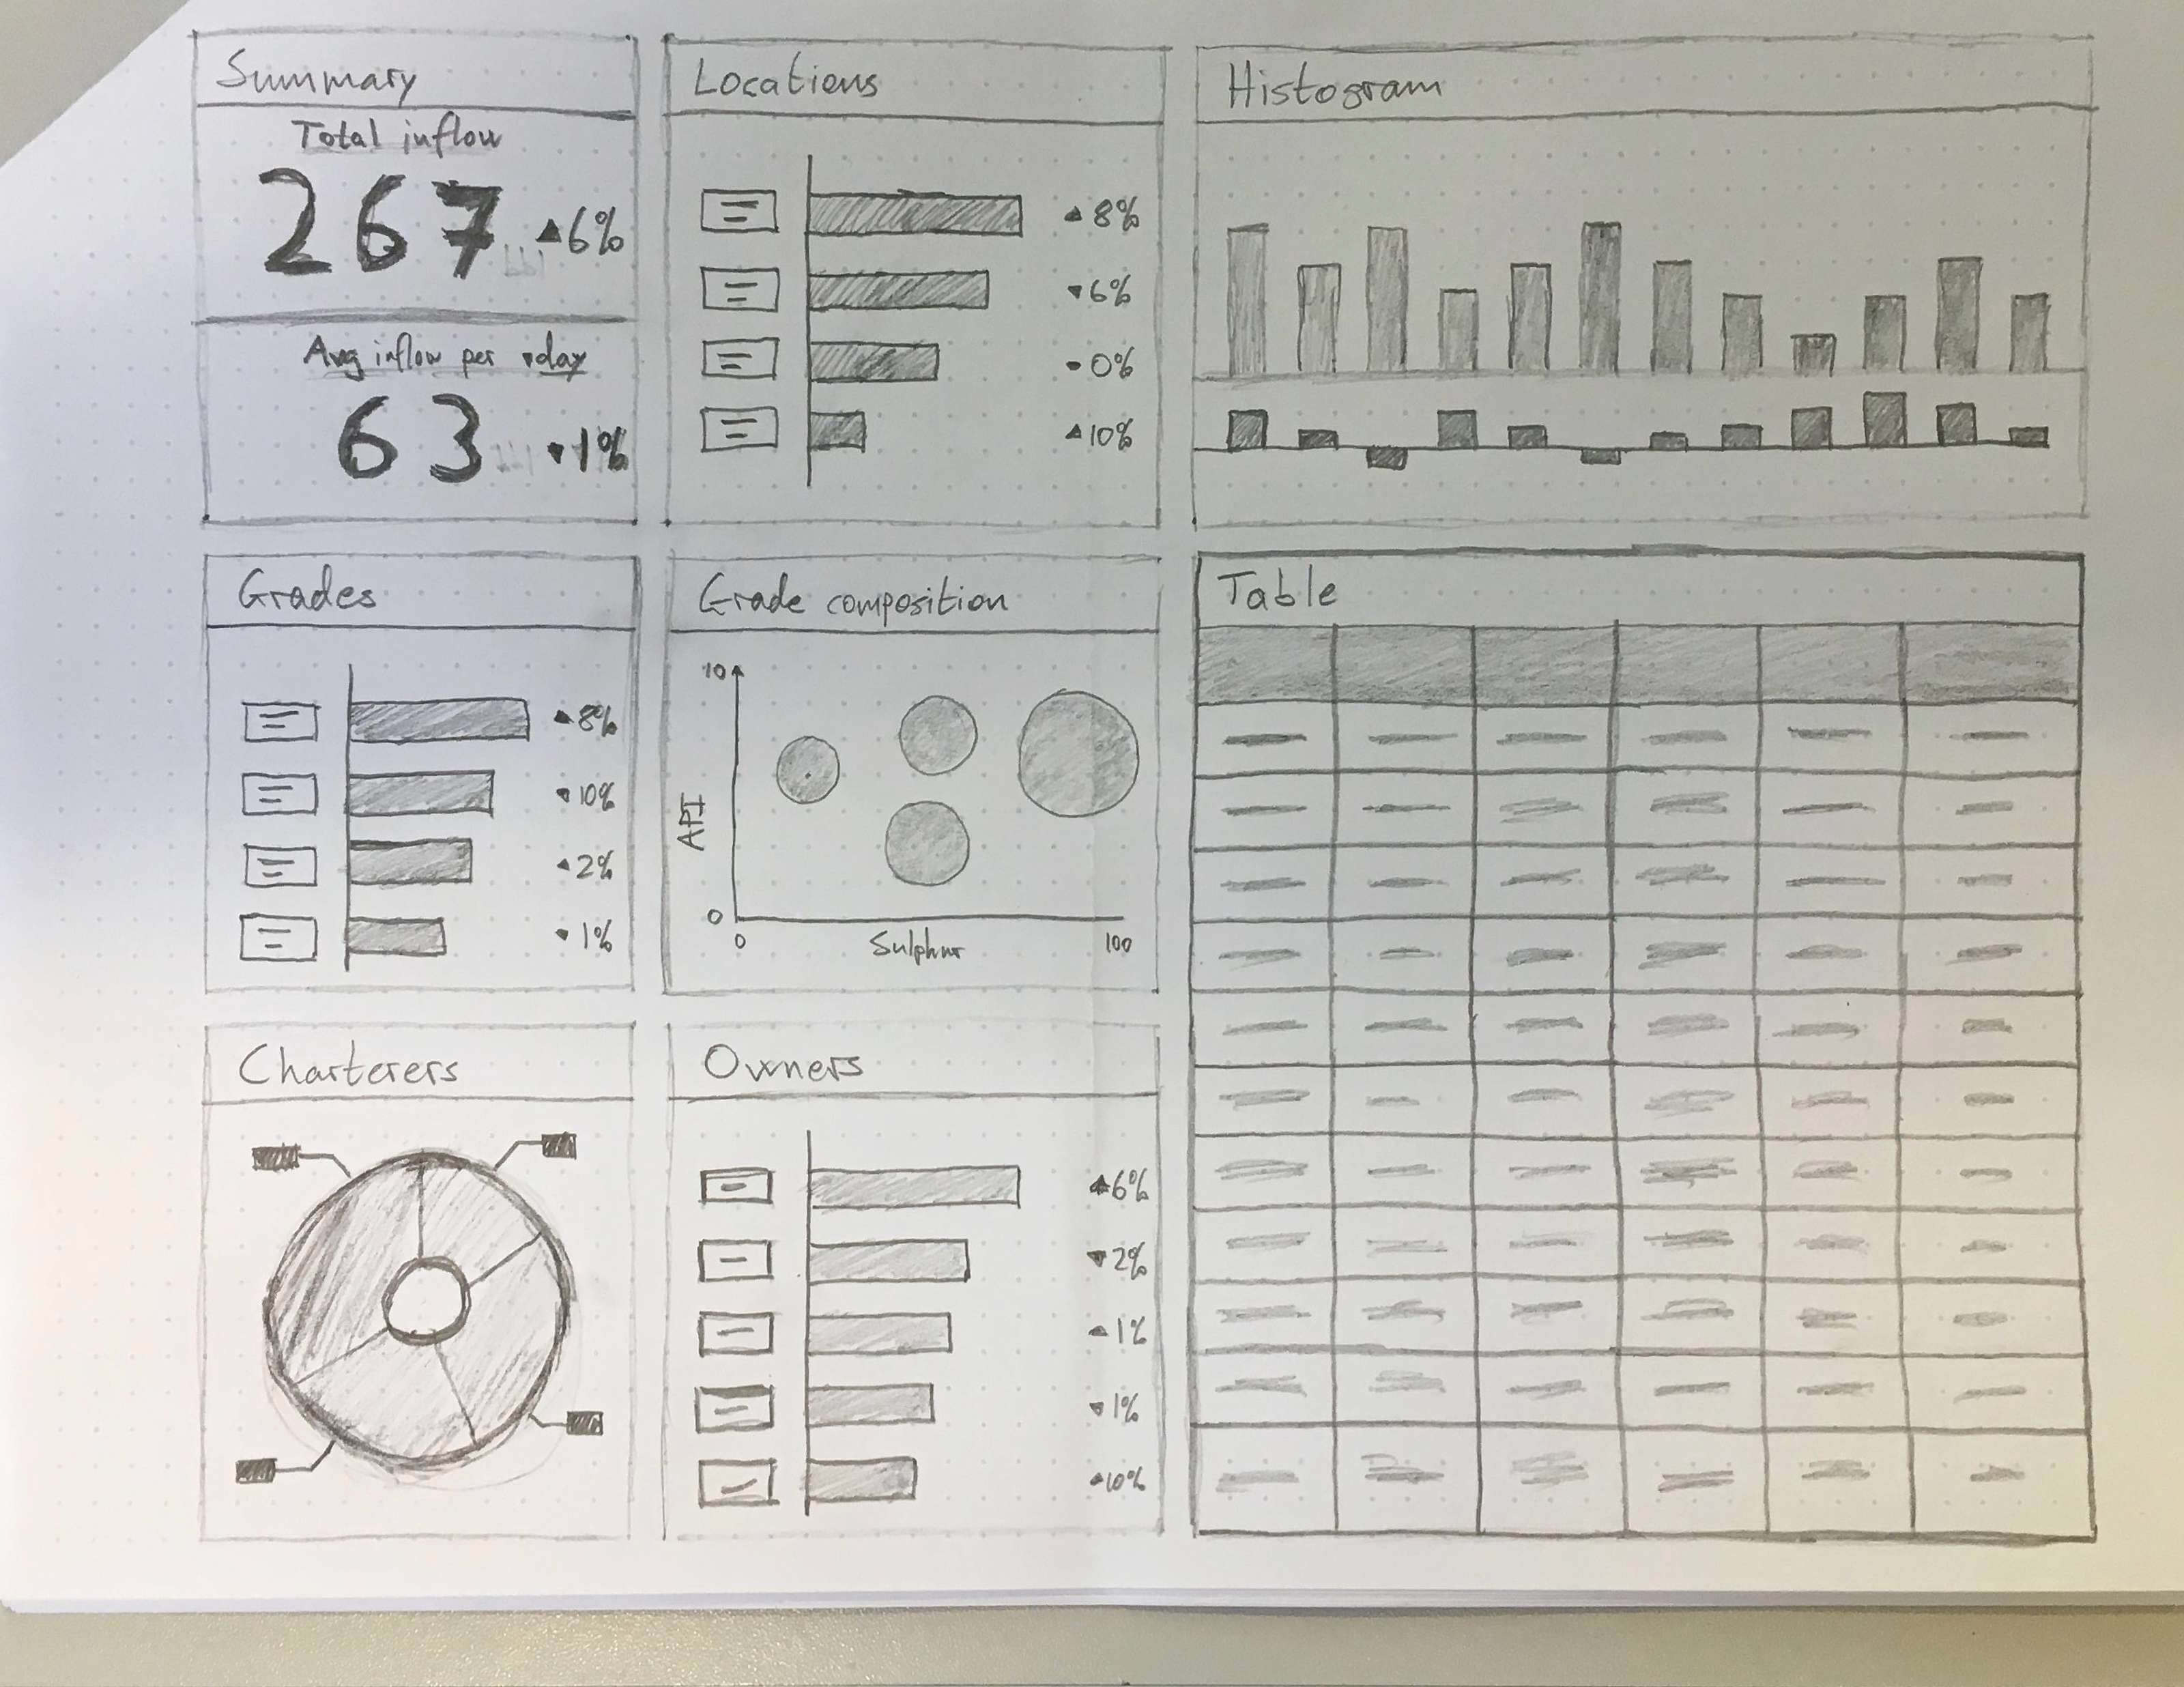 Summary
Total inflow
267 ▲6%
Avg inflow per day
63 ▼1%
Locations
▲8%
▼6%
-0%
▲10%
Histogram
Grades
▲8%
▼10%
▲2%
▼1%
Grade composition
10
API
0
0 Sulphur 100
Table
Charterers
Owners
▲6%
▼2%
▲1%
▼1%
▲10%